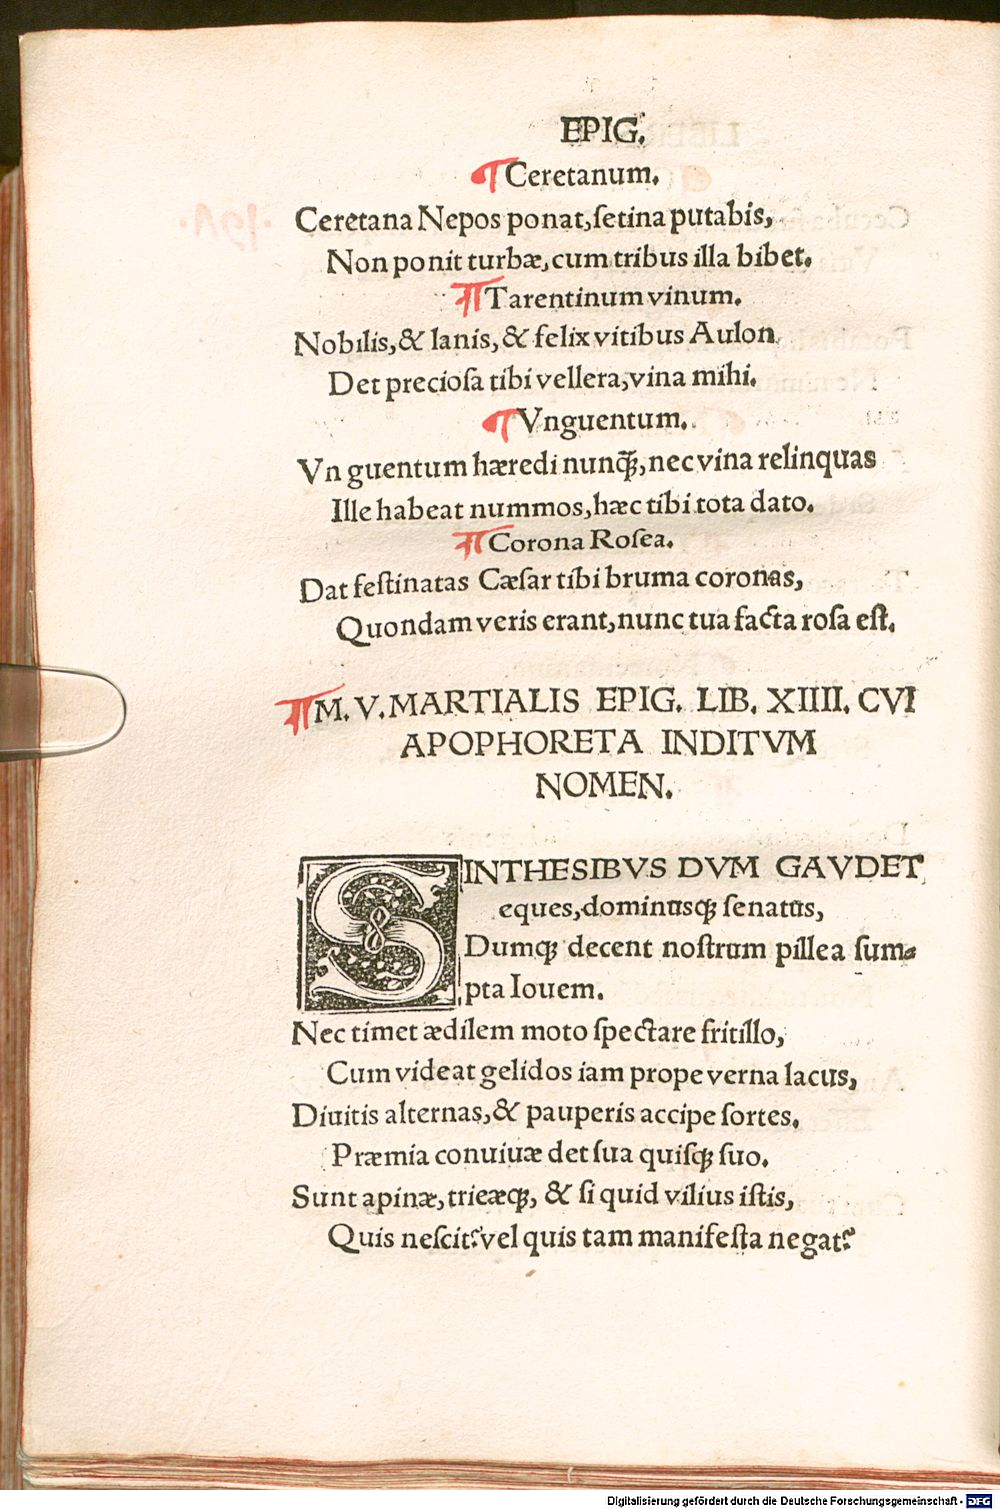 EPIG.
¶Ceretanum.
Ceretana Nepos ponat,ſetina putabis,
Non ponit turbæ,cum tribus illa bibet.
¶Tarentinum vinum.
Nobilis,& lanis,& felix vitibus Aulon
Det precioſa tibi vellera,vina mihi.
¶Vnguentum.
Vn guentum hæredi nunq̃,nec vina relinquas
Ille habeat nummos,hæc tibi tota dato.
¶Corona Roſea.
Dat feſtinatas Cæſar tibi bruma coronas,
Quondam veris erant,nunc tua facta roſa eſt.
¶M. V. MARTIALIS EPIG. LIB. XIIII. CVI
APOPHORETA INDITVM
NOMEN.
SINTHESIBVS DVM GAVDET
eques,dominusq; ſenatus,
Dumq; decent noſtrum pillea ſum-
pta Iouem.
Nec timet ædilem moto ſpectare fritillo,
Cum videat gelidos iam prope verna lacus,
Diuitis alternas,& pauperis accipe ſortes,
Præmia conuiuæ det ſua quiſq; ſuo.
Sunt apinæ,tricæq;, & ſi quid vilius iſtis,
Quis neſcit?vel quis tam manifeſta negat?
Digitalisierung gefördert durch die Deutsche Forschungsgemeinschaft - DFG